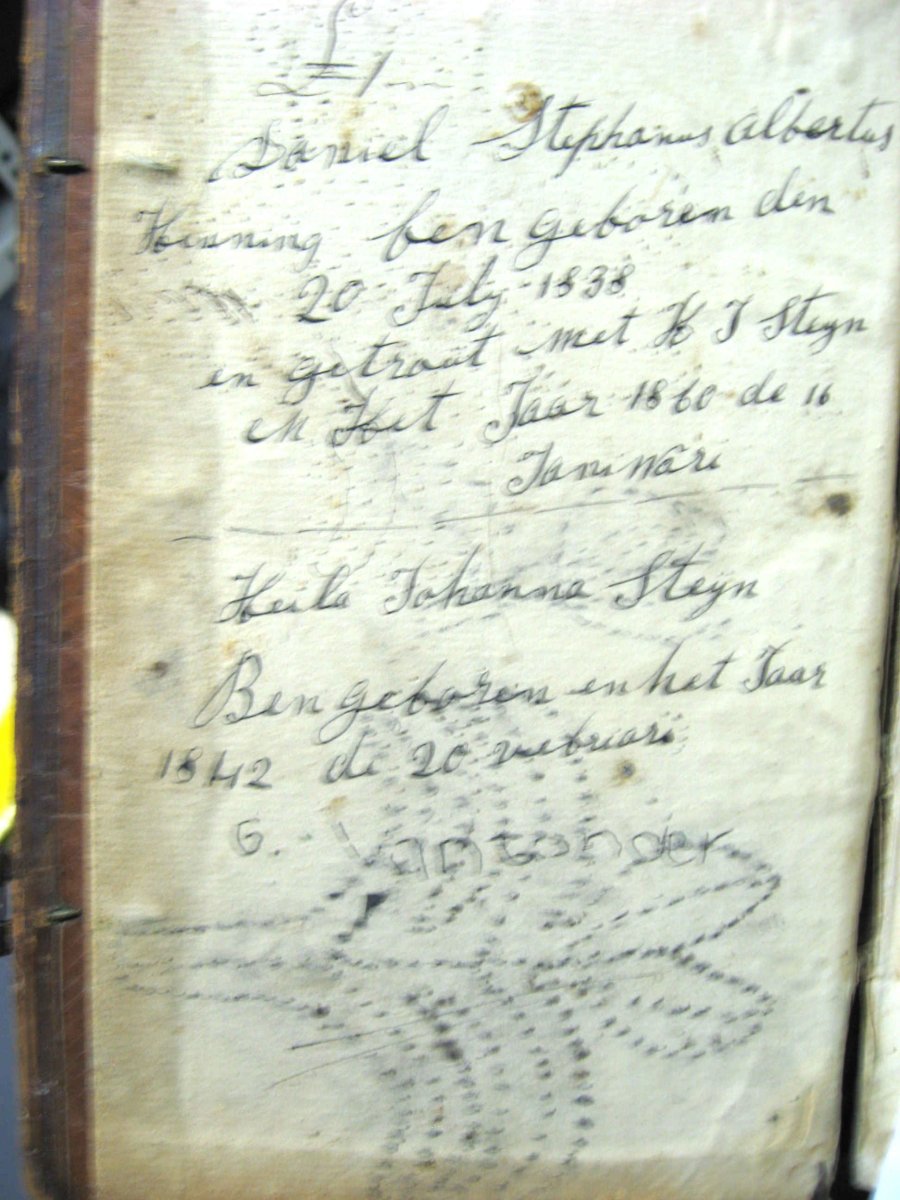 £1
Daniel Stephanus Albertus
Henning ben geboren den
20 July 1838
en getroat met H J Steyn
en Het Jaar 1860 de 16
Janiwari
Heila Johanna Steyn
Ben geboren en het Jaar
1842 de 20 vebruari
G. Vantonder